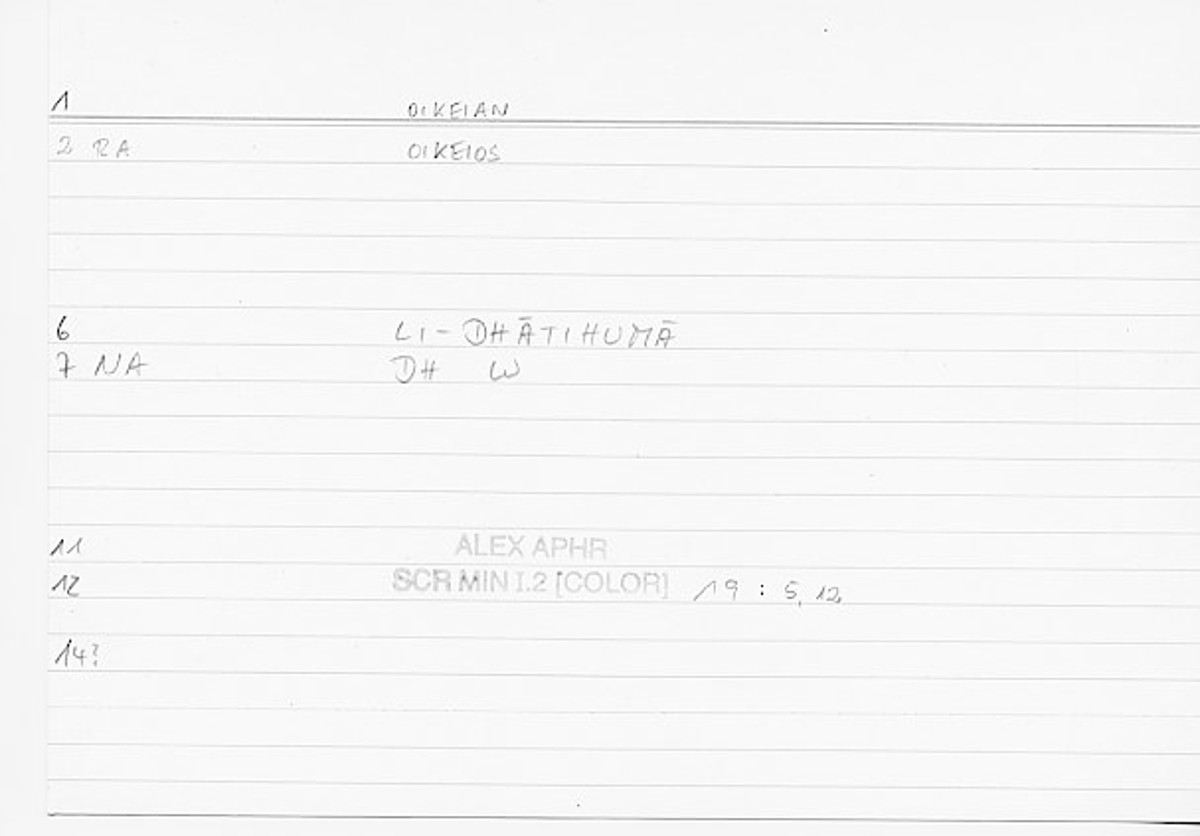 1 OIKEIAN
2 RA OIKEIOS
6 LI-DHĀTIHUMĀ
7 NA DH W
11 ALEX APHR
12 SCR MIN I.2 [COLOR] 19 : 5, 12
14?